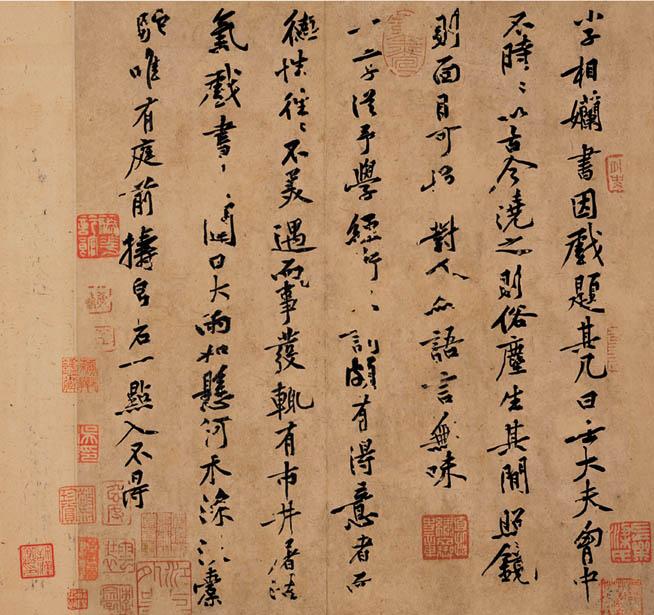 小子相孄書因戲題其几曰士大夫胷中
不時〻以古今澆之則俗塵生其間照鏡
則面目可憎對人亦語言無味
一二子從予學經訓頗有得意者而
往〻不美遇事發輒有市井屠沽
氣戲書日大雨如懸河禾深索
駝唯有庭前擣帛石一點入不得